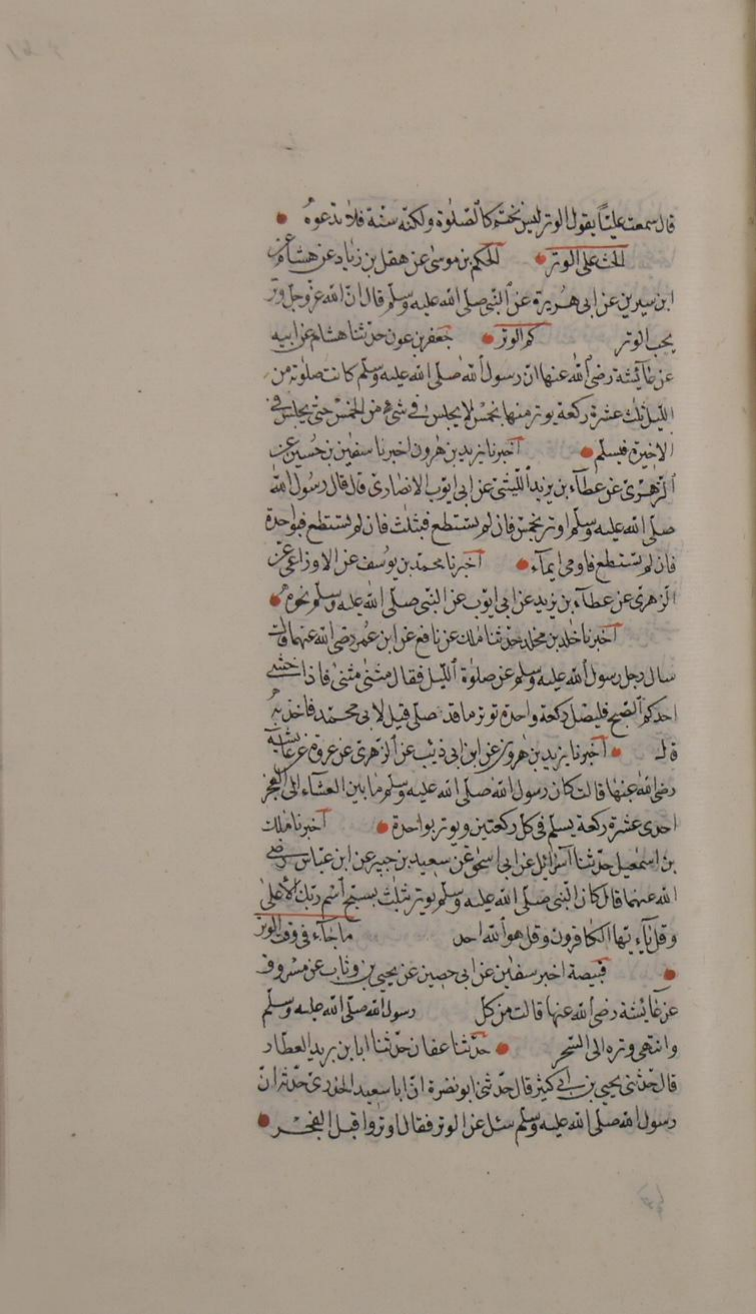 قال سمعت عليّاً يقول الوتر ليس بحتم كالصلوة ولكنه سنة فلا تدعوه
الحث على الوتر الحكم بن موسى عن هقل بن زياد عن هشام عن
ابن سيرين عن ابى هريرة عن النبى صلى الله عليه وسلم قال ان الله عز وجل وتر
يحب الوتر كم الوتر جعفر بن عون حدثنا هشام عن ابيه
عن عائشة رضى الله عنها ان رسول الله صلى الله عليه وسلم كانت صلوته من
الليل ثلث عشرة ركعة يوتر منها بخمس لا يجلس فى شئ من الخمس حتى يجلس فى
الاخيرة فيسلم اخبرنا يزيد بن هرون اخبرنا سفين بن حسين عن
الزهرى عن عطاء بن يزيد الليثى عن ابى ايوب الانصارى قال قال رسول الله
صلى الله عليه وسلم اوتر بخمس فان لم تستطع فبثلث فان لم تستطع فبواحدة
فان لم تستطع فاومى ايماء اخبرنا محمد بن يوسف عن الاوزاعى عن
الزهرى عن عطاء بن يزيد عن ابى ايوب عن النبى صلى الله عليه وسلم نحوه
اخبرنا خلد بن مخلد حدثنا ملك عن نافع عن ابن عمر رضى الله عنهما قال
سال رجل رسول الله صلى الله عليه وسلم عن صلوة الليل فقال مثنى مثنى فاذا خشى
احدكم الصبح فليصل ركعة واحدة توتر ما قد صلى قيل لابى محمد فاخذ به
قال اخبرنا يزيد بن هرون عن ابن ابى ذئب عن الزهرى عن عروة عن عائشة
رضى الله عنها قالت كان رسول الله صلى الله عليه وسلم ما بين العشاء الى الفجر
احدى عشرة ركعة يسلم فى كل ركعتين ويوتر بواحدة اخبرنا ملك
بن اسمعيل حدثنا اسرائيل عن ابى اسحق عن سعيد بن جبير عن ابن عباس رضى
الله عنهما قال كان النبى صلى الله عليه وسلم يوتر بثلث بسبح اسم ربك الاعلى
وقل يآءيها الكافرون وقل هو الله احد ما جاء فى وقت الوتر
قبيصة اخبر سفين عن ابى حصين عن يحيى بن وثاب عن مسروق
عن عائشة رضى الله عنها قالت من كل رسول الله صلى الله عليه وسلم
وانتهى وتره الى السحر حدثنا عفان حدثنا ابان بن يزيد العطار
قال حدثنى يحيى بن ابى كثير قال حدثنى ابو نضرة ان ابا سعيد الخدرى حدثه ان
رسول الله صلى الله عليه وسلم سئل عن الوتر فقال اوتروا قبل الفجر